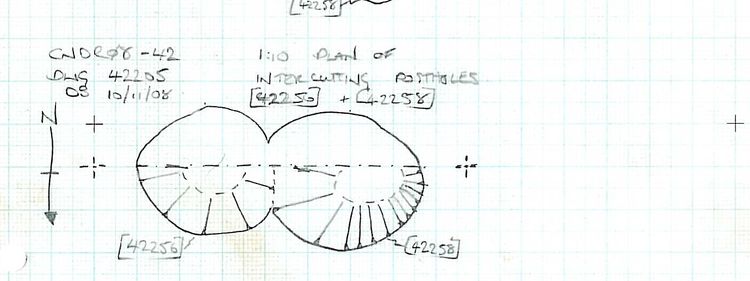 [42258]
CNDR08-42
DWG 42205
OS 10/11/08
1:10 PLAN OF
INTERCUTTING POSTHOLES
[42256] + [42258]
N
[42256]
[42258]